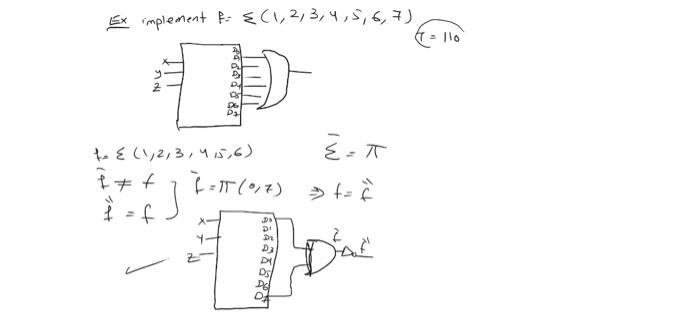 Ex implement f= Σ(1,2,3,4,5,6,7)
7=110
x
y
z
D0
D1
D2
D3
D4
D5
D6
D7
f= Σ(1,2,3,4,5,6)
Σ̄ = π
f̄ ≠ f
f̿ = f
f̄=π(0,7) ⇒ f= f̿
x
y
z
D0
D1
D2
D3
D4
D5
D6
D7
f̄
f̿